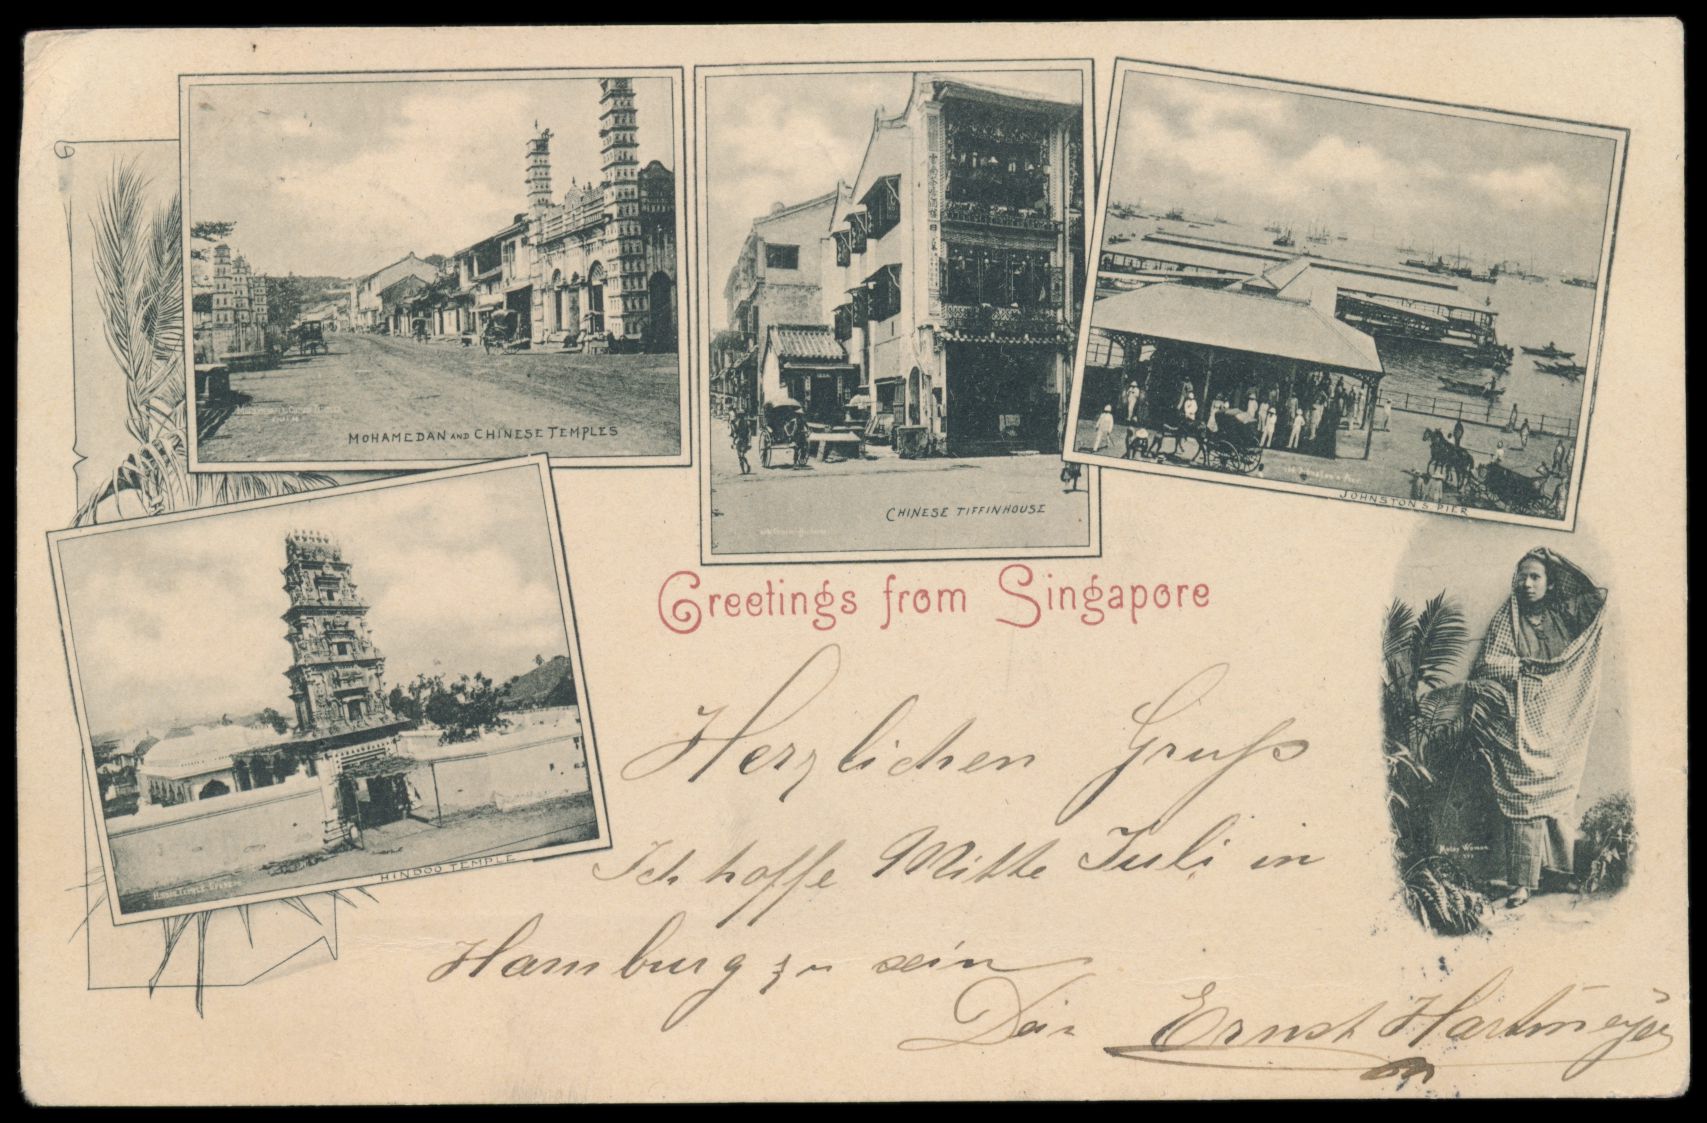 MOHAMEDAN AND CHINESE TEMPLES
CHINESE TIFFINHOUSE
JOHNSTON'S PIER
HINDOO TEMPLE
Malay Woman
Greetings from Singapore
Herzlichen Gruß
Ich hoffe Mitte Juli in
Hamburg zu sein
Dein Ernst Hartmeyer